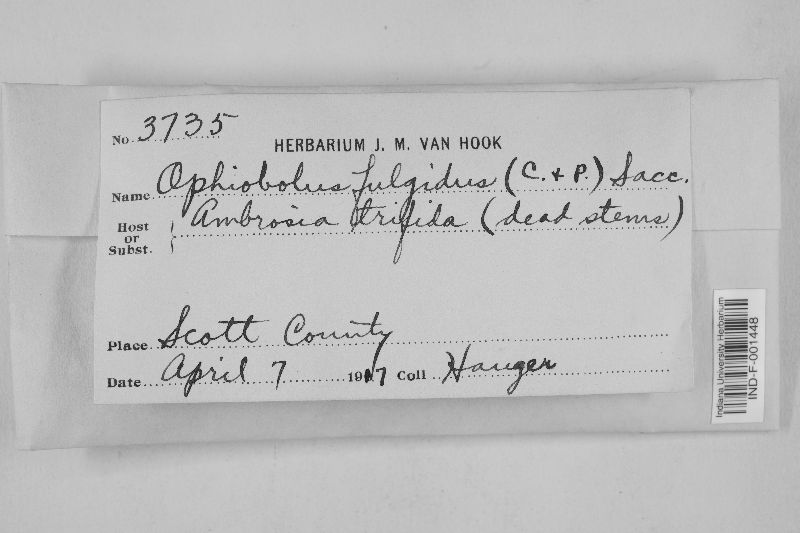 No. 3735
HERBARIUM J. M. VAN HOOK
Name Ophiobolus fulgidus (C. & P.) Sacc.
Host or Subst. Ambrosia trifida (dead stems)
Place Scott County
Date April 7 1917 Coll Hauger
Indiana University Herbarium
IND-F-001448